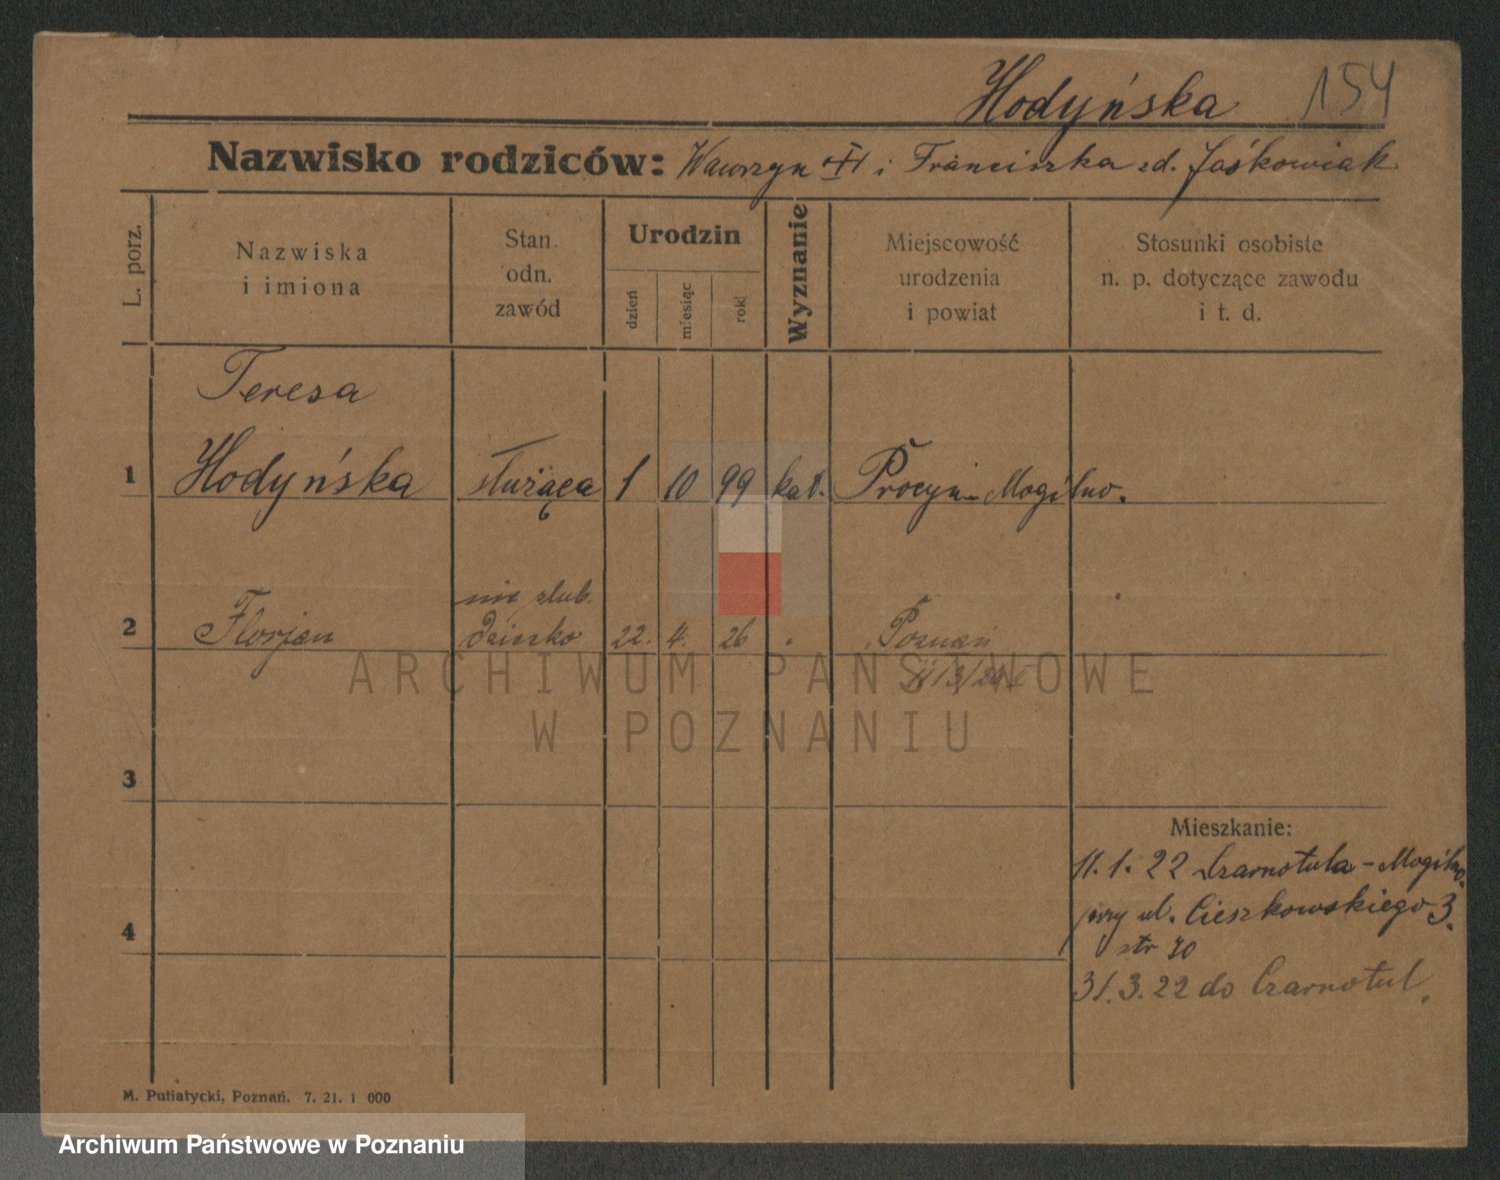 Hodyńska 154
Nazwisko rodziców: Wawrzyn i Franciszka zd. Jaśkowiak
L. porz.
Nazwiska
i imiona
Stan.
odn.
zawód
Urodzin
dzień
miesiąc
rok
Wyznanie
Miejscowość
urodzenia
i powiat
Stosunki osobiste
n. p. dotyczące zawodu
i t. d.
Teresa
1 Hodyńska służąca 1 10 99 kat. Procyń - Mogilno.
nie ślub.
2 Florjan dziecko 22. 4. 26 " Poznań
ARCHIWUM PAŃSTWOWE
W POZNANIU
3
Mieszkanie:
11. 1. 22 Czarnotula - Mogilno.
przy ul. Cieszkowskiego 3.
4
str 10
31. 3. 22 do Czarnotul.
M. Putiatycki, Poznań. 7. 21. 1 000
Archiwum Państwowe w Poznaniu